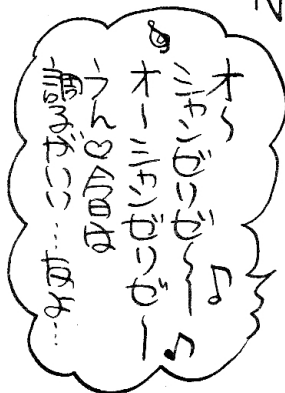 オ〜
シャンゼリゼ〜♪
オーシャンゼリゼ〜♪
うん♡今日は
調子がいい…わよ…